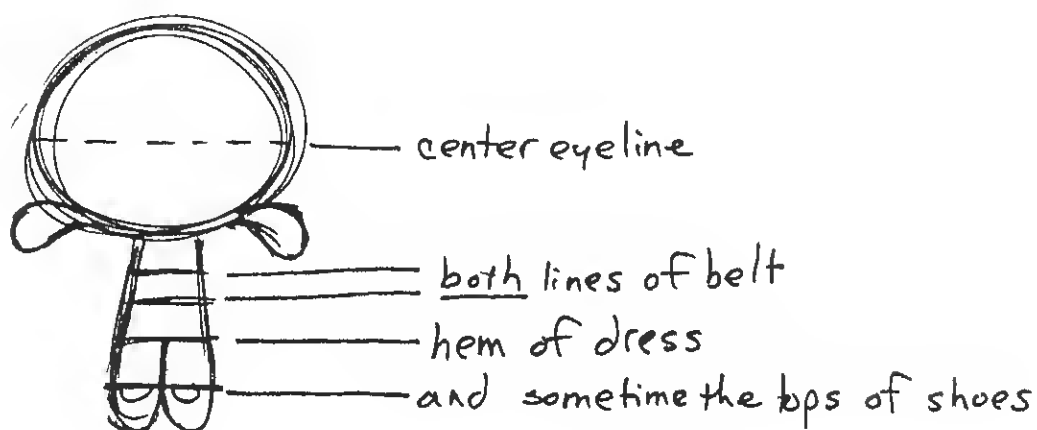 center eyeline
both lines of belt
hem of dress
and sometime the tops of shoes